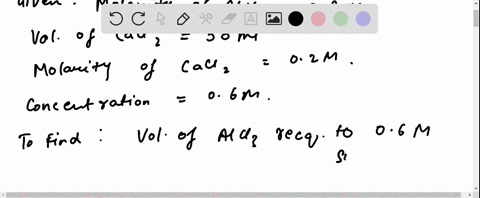 Given : Molarity of
Vol. of CaCl2 = 50 ml
Molarity of CaCl2 = 0.2 M.
Concentration = 0.6 M.
To find : Vol. of AlCl3 recq. to 0.6 M